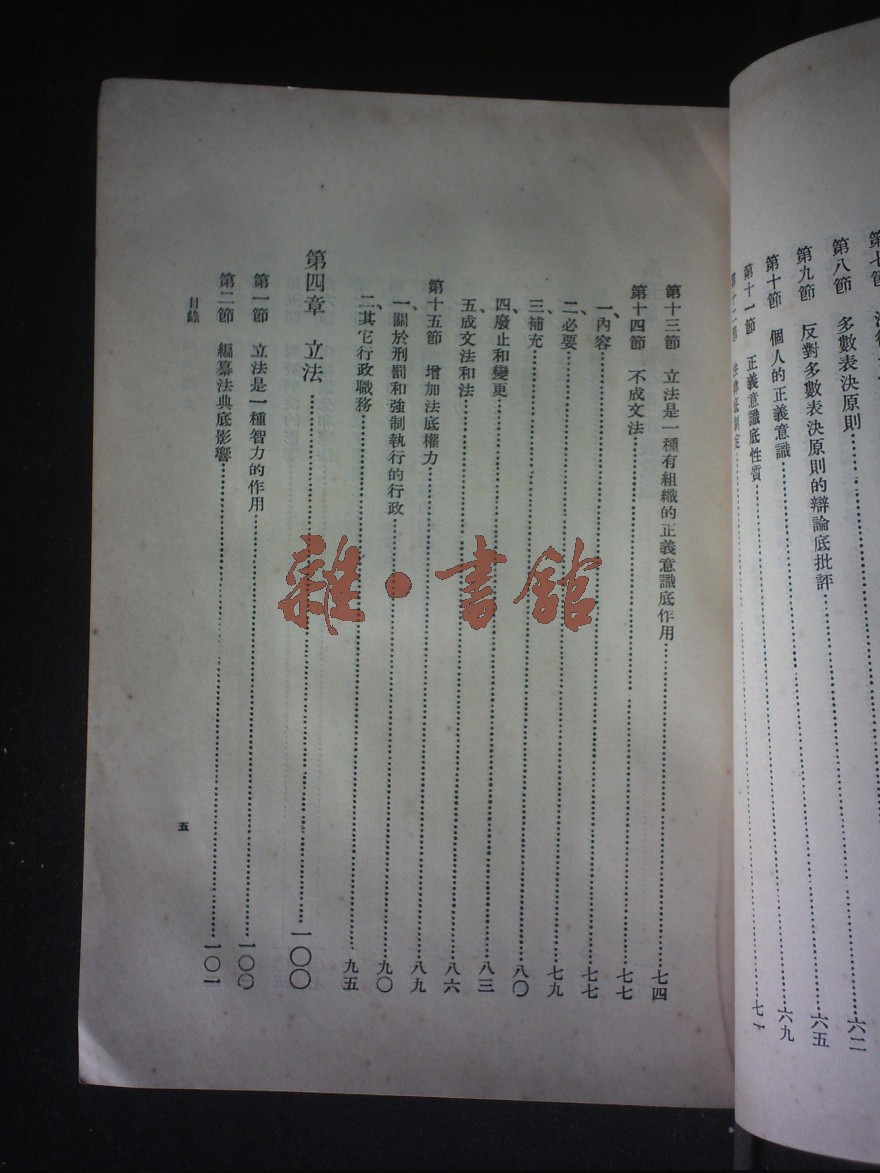 第七節
第八節 多數表決原則……六二
第九節 反對多數表決原則的辯論底批評……六五
第十節 個人的正義意識……六九
第十一節 正義意識底性質……七一
第十二節 法律底制定……
第十三節 立法是一種有組織的正義意識底作用……七四
第十四節 不成文法……七七
一、內容……七七
二、必要……七九
三、補充……八〇
四、廢止和變更……八三
五、成文法和法……八六
第十五節 增加法底權力……八九
一、關於刑罰和強制執行的行政……九〇
二、其它行政職務……九五
第四章 立法……一〇〇
第一節 立法是一種智力的作用……一〇〇
第二節 編纂法典底影響……一〇一
目錄
五
雜·書館